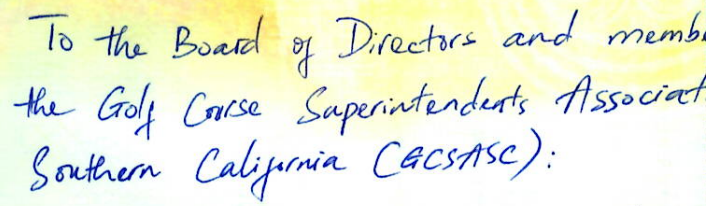 To the Board of Directors and memb
the Golf Course Superintendents Associat
Southern California (GCSASC):